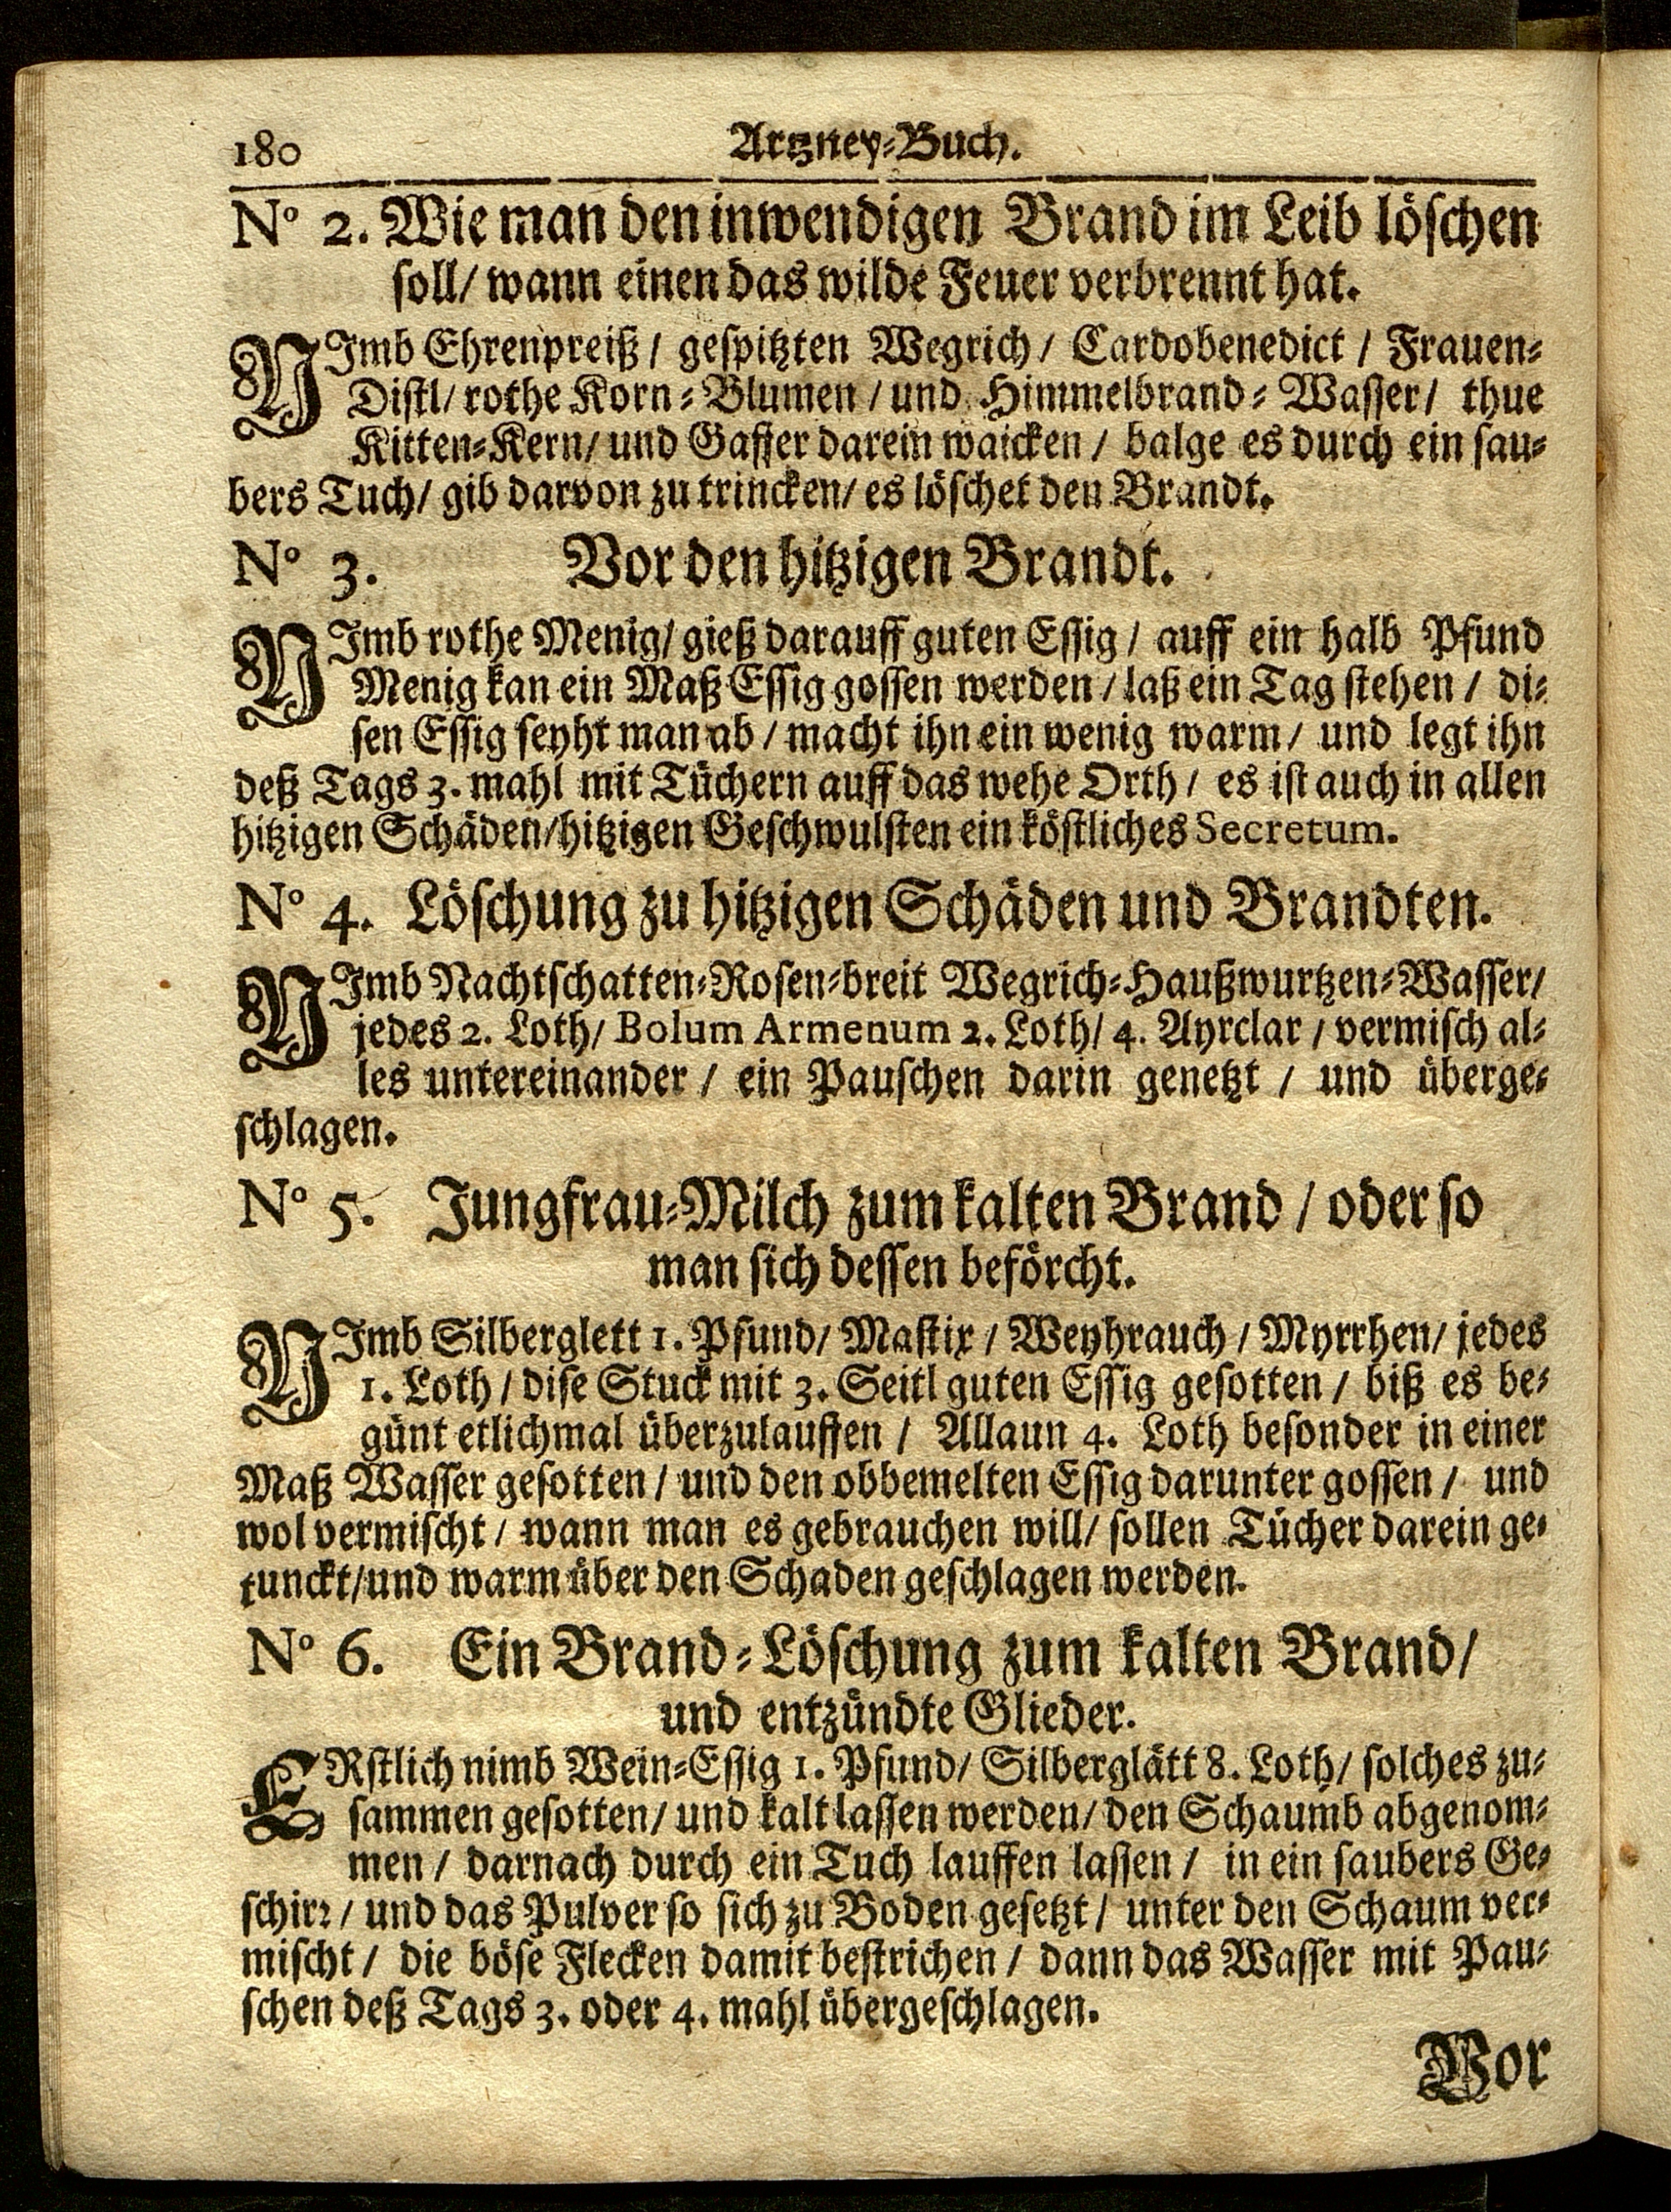 180 Artzney-Buch.
N° 2. Wie man den inwendigen Brand im Leib löschen
soll/ wann einen das wilde Feuer verbrennt hat.
NImb Ehrenpreiß / gespitzten Wegrich / Cardobenedict / Frauen-
Distl/ rothe Korn-Blumen / und Himmelbrand-Wasser/ thue
Kitten-Kern/ und Gaffer darein waicken / balge es durch ein sau-
bers Tuch/ gib darvon zu trincken/ es löschet den Brandt.
N° 3. Vor den hitzigen Brandt.
NImb rothe Menig/ gieß darauff guten Essig / auff ein halb Pfund
Menig kan ein Maß Essig gossen werden / laß ein Tag stehen / di-
sen Essig seyht man ab / macht ihn ein wenig warm / und legt ihn
deß Tags 3. mahl mit Tüchern auff das wehe Orth / es ist auch in allen
hitzigen Schäden/hitzigen Geschwulsten ein köstliches Secretum.
N° 4. Löschung zu hitzigen Schäden und Brandten.
NImb Nachtschatten-Rosen-breit Wegrich-Haußwurtzen-Wasser/
jedes 2. Loth/ Bolum Armenum 2. Loth/ 4. Ayrclar / vermisch al-
les untereinander / ein Pauschen darin genetzt / und überge-
schlagen.
N° 5. Jungfrau-Milch zum kalten Brand / oder so
man sich dessen beförcht.
NImb Silberglett 1. Pfund/ Mastix / Weyhrauch / Myrrhen/ jedes
1. Loth / dise Stuck mit 3. Seitl guten Essig gesotten / biß es be-
günt etlichmal überzulauffen / Allaun 4. Loth besonder in einer
Maß Wasser gesotten / und den obbemelten Essig darunter gossen / und
wol vermischt / wann man es gebrauchen will/ sollen Tücher darein ge-
tunckt/und warm über den Schaden geschlagen werden.
N° 6. Ein Brand-Löschung zum kalten Brand/
und entzündte Glieder.
ERstlich nimb Wein-Essig 1. Pfund/ Silberglätt 8. Loth/ solches zu-
sammen gesotten/ und kalt lassen werden/ den Schaumb abgenom-
men / darnach durch ein Tuch lauffen lassen / in ein saubers Ge-
schirr / und das Pulver so sich zu Boden gesetzt / unter den Schaum ver-
mischt / die böse Flecken damit bestrichen / dann das Wasser mit Pau-
schen deß Tags 3. oder 4. mahl übergeschlagen.
Vor